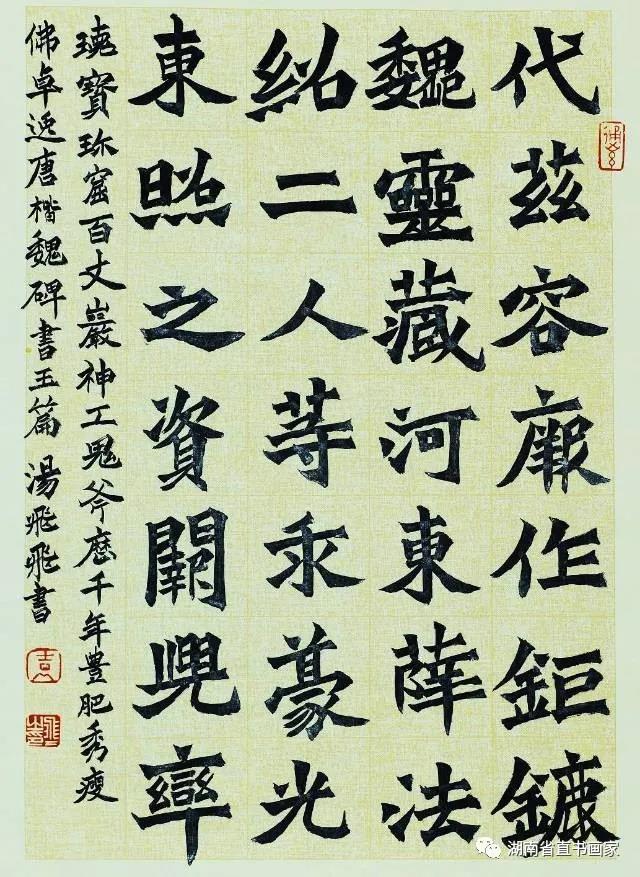 代茲容厥作鉅鏕
魏靈藏河東薛法
紹二人等求豪光
東照之資闕兜率
寶珎窟百丈巖神工鬼斧歷千年豊肥秀瘦
佛卓逸唐楷魏碑書玉篇 湯飛飛書
湖南省直书画家